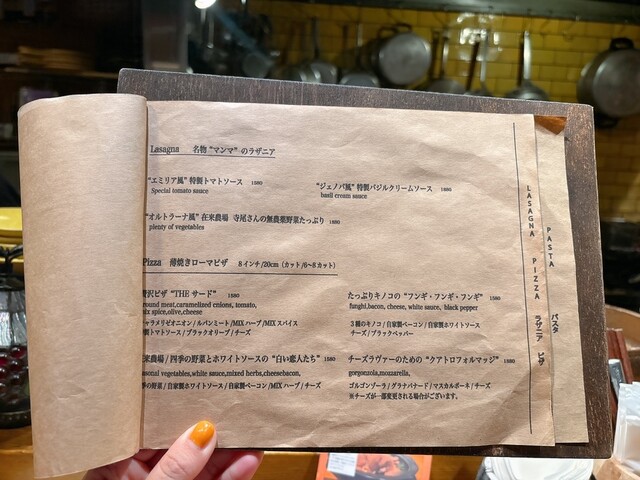 Lasagna 名物 "マンマ" のラザニア
"エミリア風" 特製トマトソース 1580
Special tomato sauce
"ジェノバ風" 特製バジルクリームソース
basil cream sauce
"オルトラーナ風" 在来農場 寺尾さんの無農薬野菜たっぷり
plenty of vegetables
Pizza 薄焼きローマピザ 8インチ/20cm (カット/6~8カット)
贅沢ピザ "THE サード" 1580
round meat,caramelized onions, tomato,
ix spice,olive,cheese
キャラメリゼオニオン/ルバンミート/MIXハーブ/MIXスパイス
製トマトソース/ブラックオリーブ/チーズ
たっぷりキノコの "フンギ・フンギ・フンギ" 1580
funghi,bacon, cheese, white sauce, black pepper
3種のキノコ/自家製ベーコン/自家製ホワイトソース
チーズ/ブラックペッパー
来農場/四季の野菜とホワイトソースの "白い恋人たち" 1580
asonal vegetables,white sauce,mixed herbs,cheesebacon,
季の野菜/自家製ホワイトソース/自家製ベーコン/MIXハーブ/チーズ
チーズラヴァーのための "クアトロフォルマッジ" 1580
gorgonzola,mozzarella,
ゴルゴンゾーラ/グラナパナード/マスカルポーネ/チーズ
※チーズが一部変更される場合がございます。
LASAGNA PIZZA ラザニア ピザ
PASTA パスタ